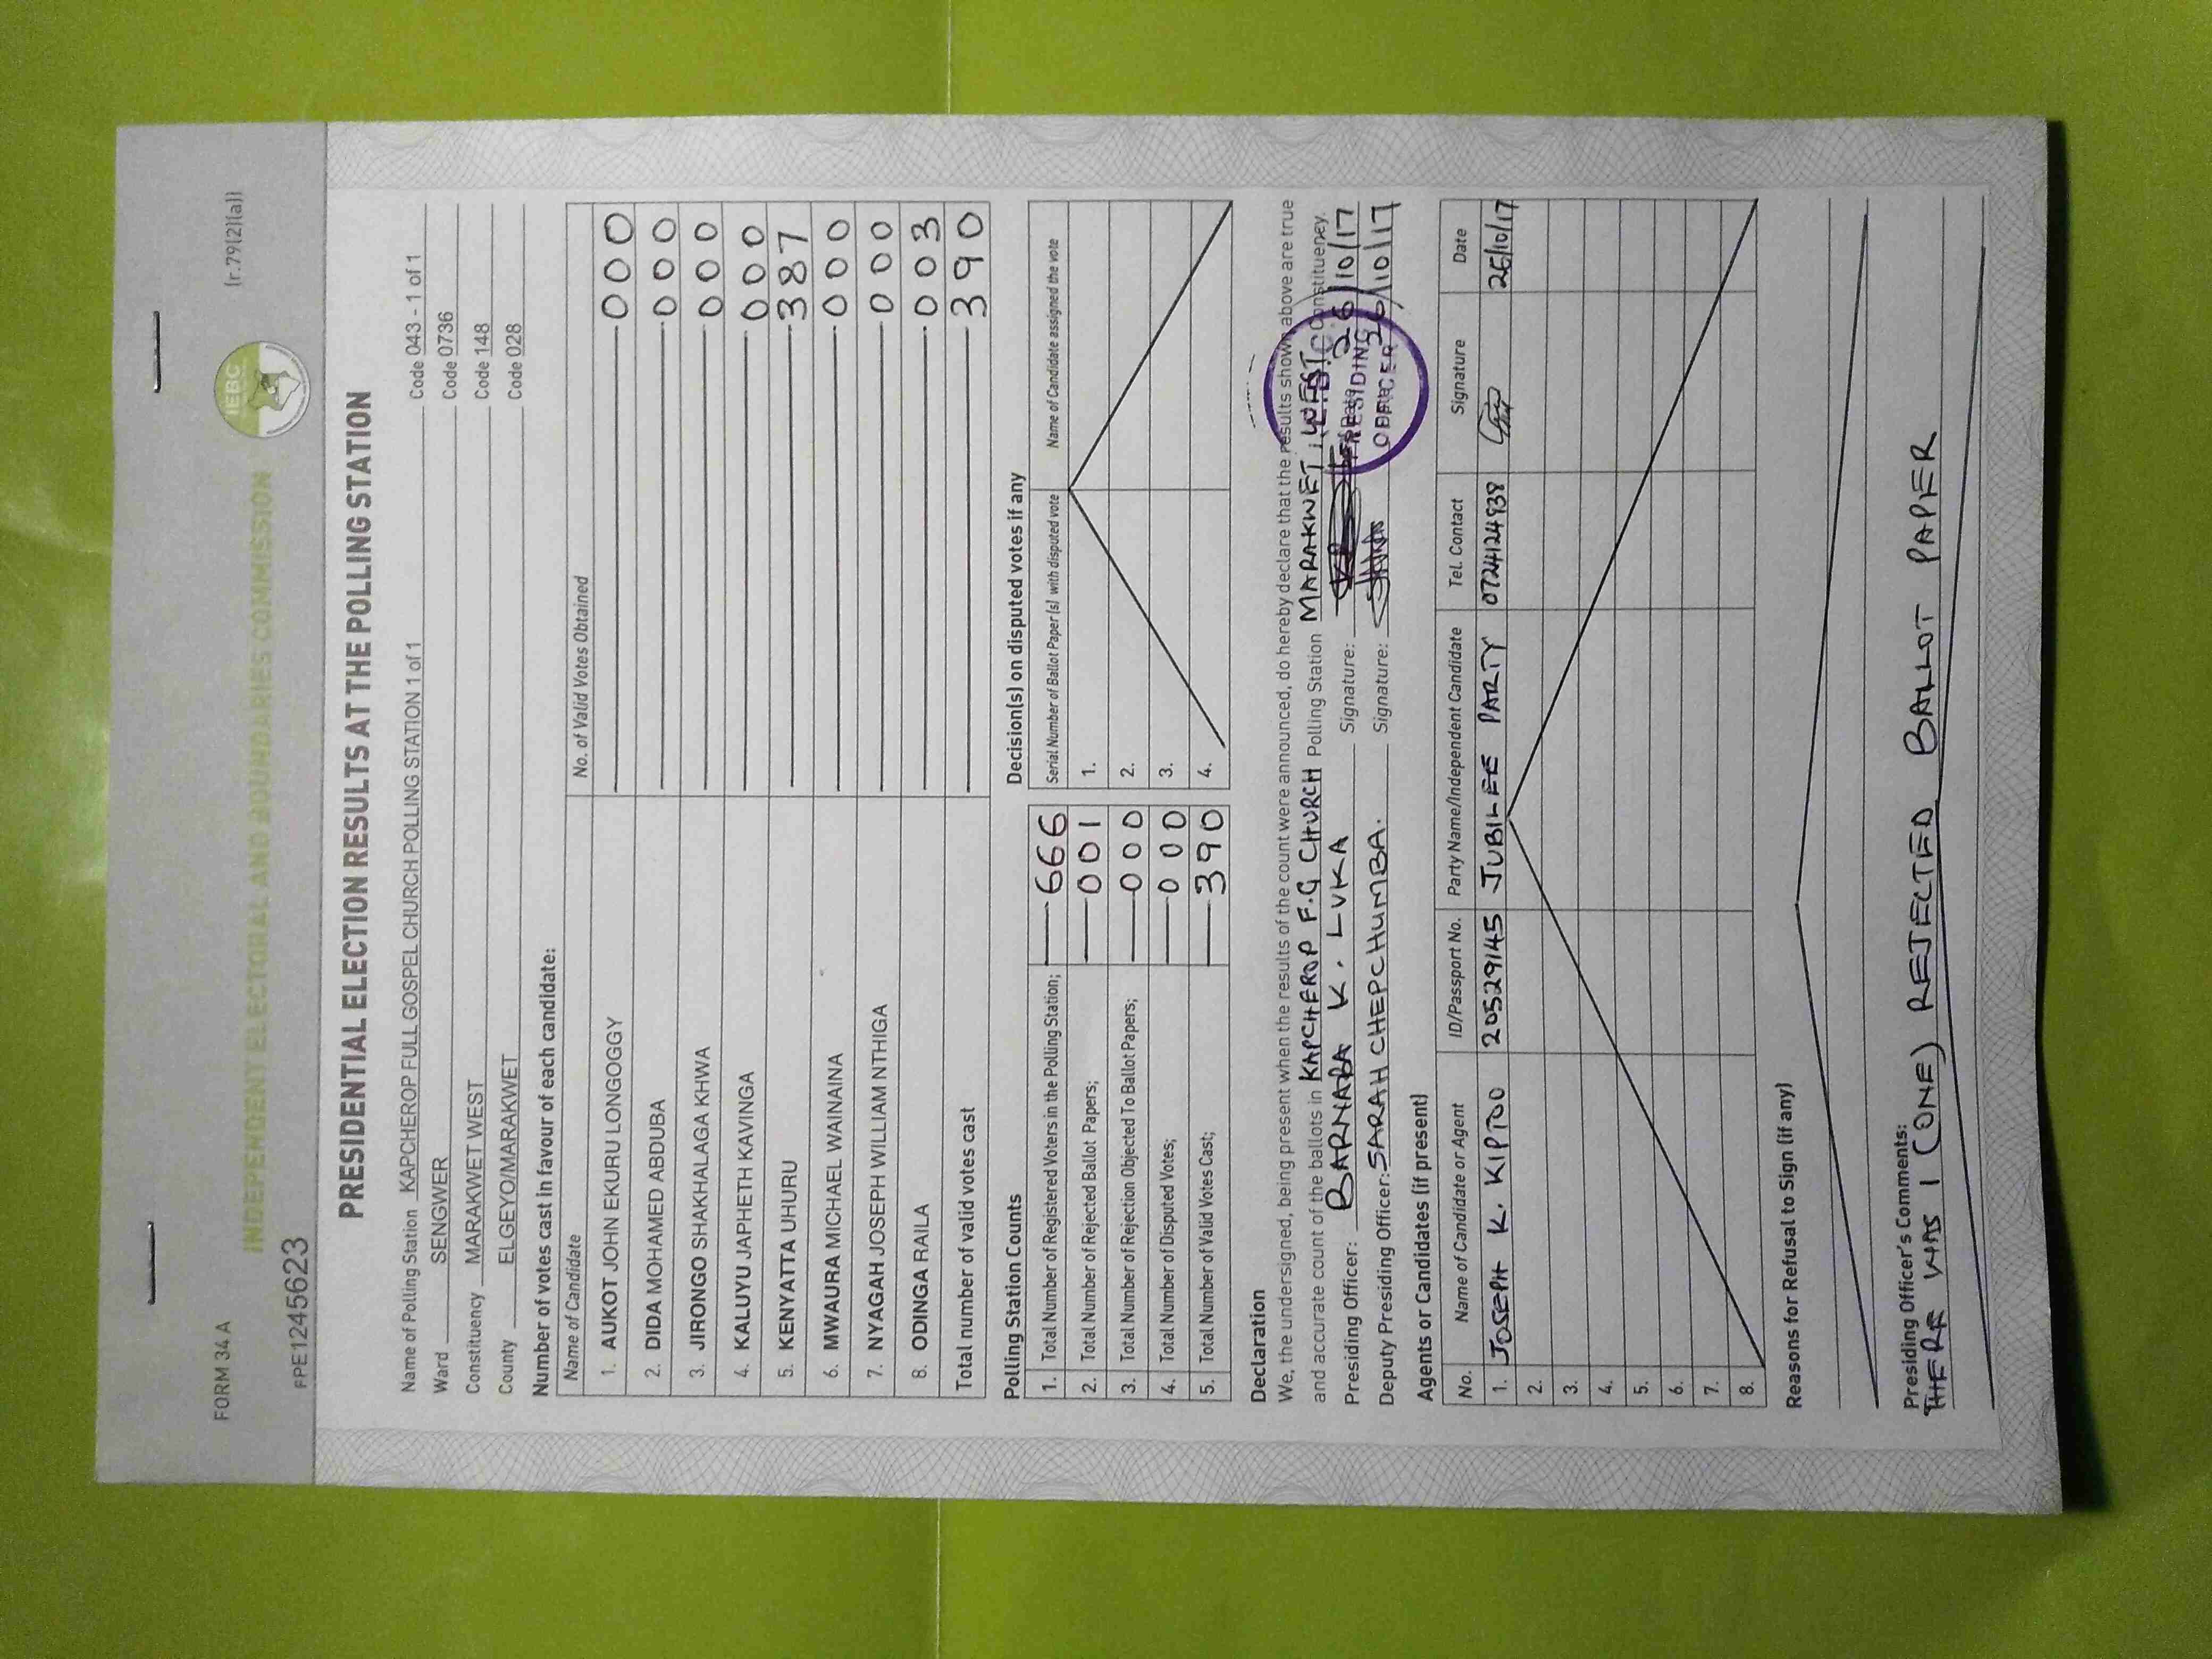 FORM 34 A
(r.79(2)(a))
IEBC
INDEPENDENT ELECTORAL AND BOUNDARIES COMMISSION
FPE1245623
PRESIDENTIAL ELECTION RESULTS AT THE POLLING STATION
Name of Polling Station KAPCHEROP FULL GOSPEL CHURCH POLLING STATION 1 of 1 Code 043 - 1 of 1
Ward SENGWER Code 0736
Constituency MARAKWET WEST Code 148
County ELGEYO/MARAKWET Code 028
Number of votes cast in favour of each candidate:
Name of Candidate No. of Valid Votes Obtained
1. AUKOT JOHN EKURU LONGOGGY 000
2. DIDA MOHAMED ABDUBA 000
3. JIRONGO SHAKHALAGA KHWA 000
4. KALUYU JAPHETH KAVINGA 000
5. KENYATTA UHURU 387
6. MWAURA MICHAEL WAINAINA 000
7. NYAGAH JOSEPH WILLIAM NTHIGA 000
8. ODINGA RAILA 003
Total number of valid votes cast 390
Polling Station Counts
1. Total Number of Registered Voters in the Polling Station; 666
2. Total Number of Rejected Ballot Papers; 001
3. Total Number of Rejection Objected To Ballot Papers; 000
4. Total Number of Disputed Votes; 000
5. Total Number of Valid Votes Cast; 390
Decision(s) on disputed votes if any
Serial Number of Ballot Paper (s) with disputed vote Name of Candidate assigned the vote
1.
2.
3.
4.
Declaration
We, the undersigned, being present when the results of the count were announced, do hereby declare that the results shown above are true
and accurate count of the ballots in KAPCHEROP F.G CHURCH Polling Station MARAKWET WEST Constituency.
Presiding Officer: BARNABA K. LUKA Signature: 26/10/17
Deputy Presiding Officer: SARAH CHEPCHUMBA. Signature: 26/10/17
PRESIDING
OFFICER
Agents or Candidates (if present)
No. Name of Candidate or Agent ID/Passport No. Party Name/Independent Candidate Tel. Contact Signature Date
1. JOSEPH K. KIPTOO 20529145 JUBILEE PARTY 0724124938 26/10/17
2.
3.
4.
5.
6.
7.
8.
Reasons for Refusal to Sign (if any)
Presiding Officer's Comments:
THERE WAS 1 (ONE) REJECTED BALLOT PAPER